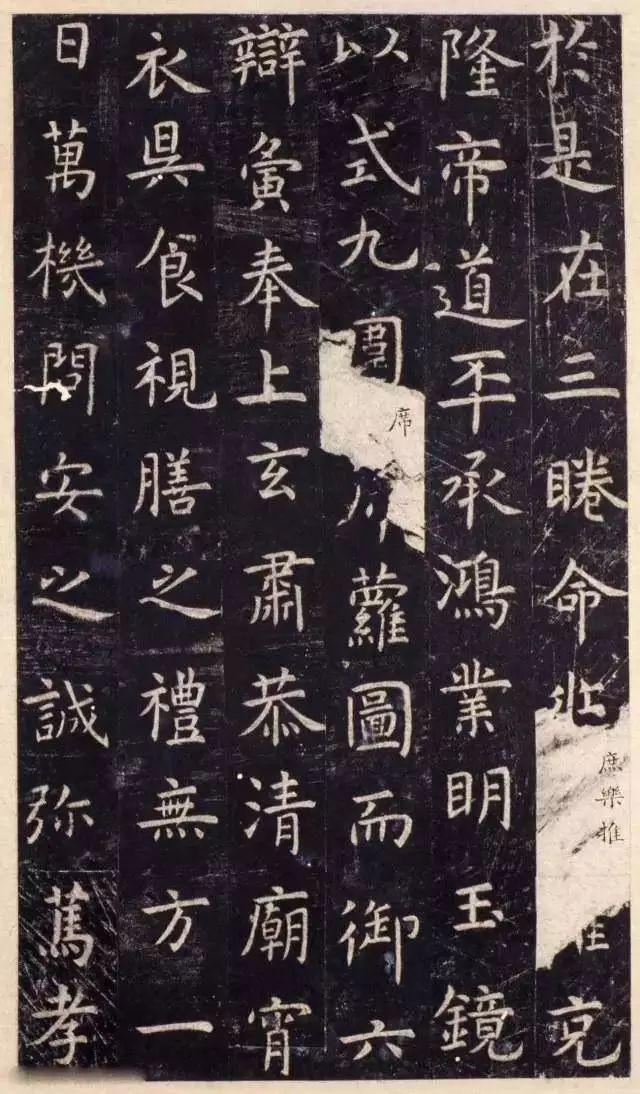 於是在三睠命兆庶樂推克
隆帝道丕承鴻業明玉鏡
以式九圍席蘿圖而御六
辯寅奉上玄肅恭清廟宵
衣昃食視膳之禮無方一
日萬機問安之誠弥篤孝